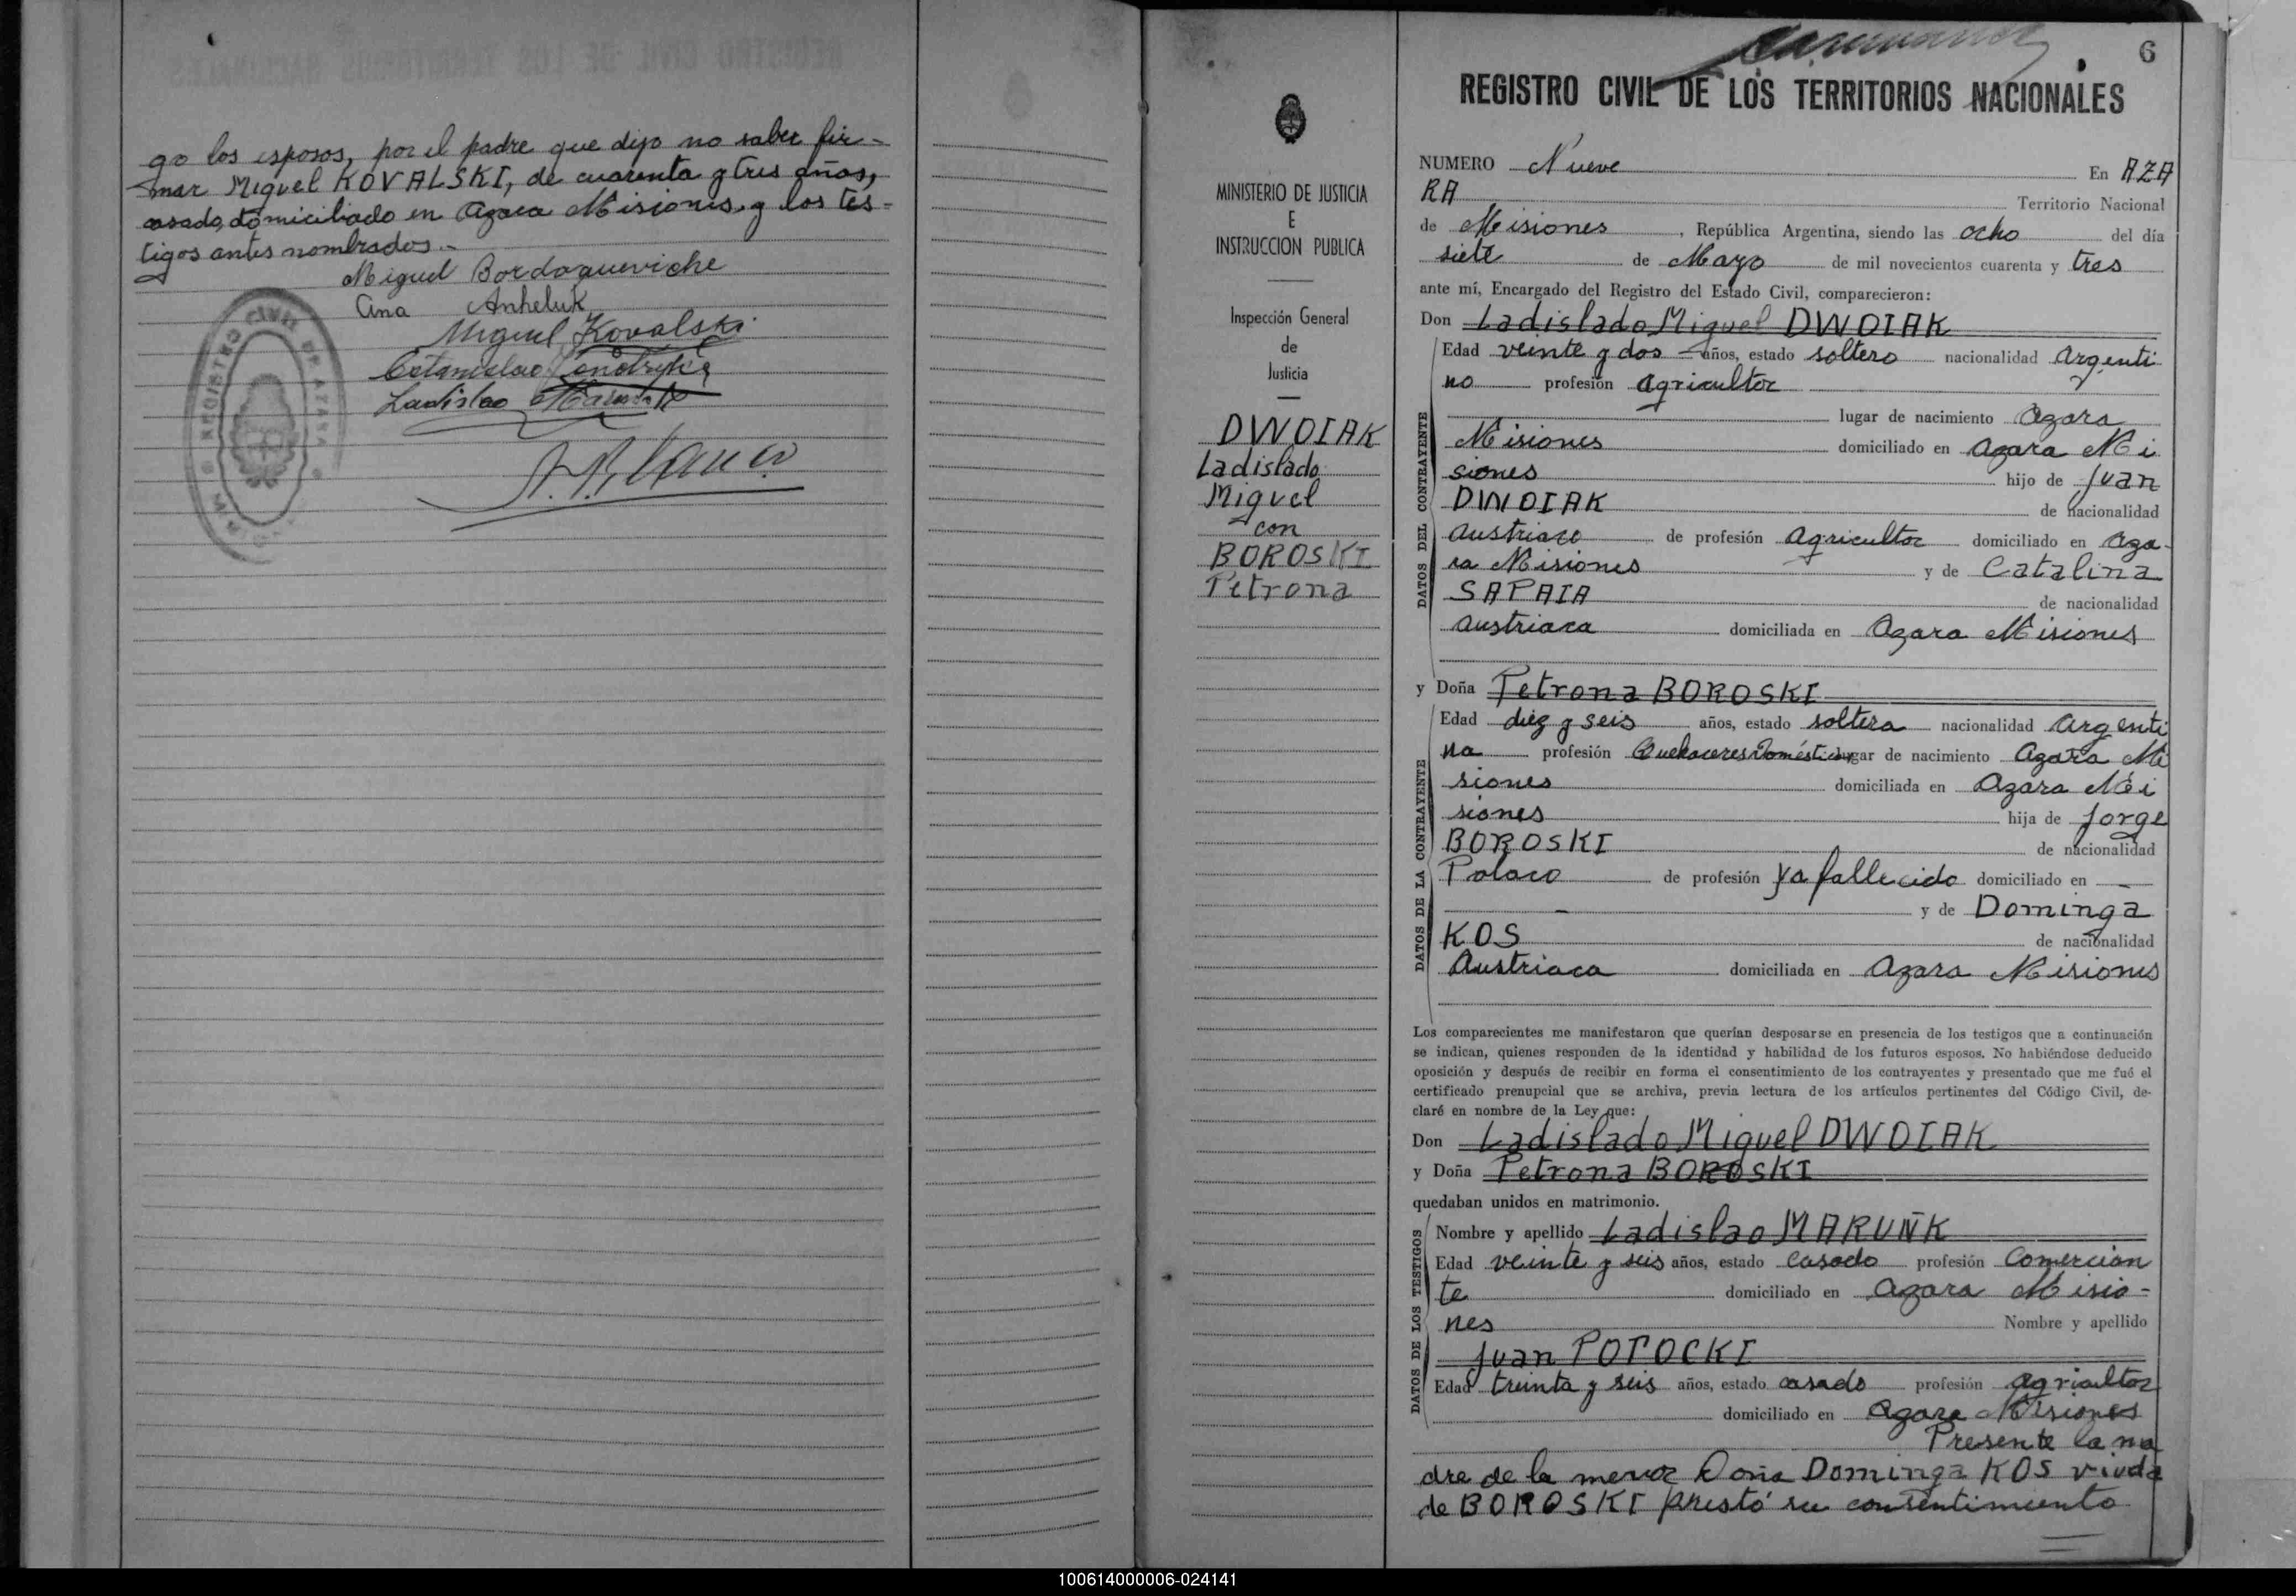 go los esposos, por el padre que dijo no saber fir-
mar Miguel KOVALSKI, de cuarenta y tres años,
casado, domiciliado en Azara Misiones, y los tes-
tigos antes nombrados.-
Miguel Bordaqueviche
Ana Anheluk
Miguel Kovalski
Estanislao
Ladislao
REGISTRO CIVIL DE AZARA
MINISTERIO DE JUSTICIA
E
INSTRUCCION PUBLICA
Inspección General
de
Justicia
DWOIAK
Ladislado
Miguel
con
BOROSKI
Petrona
6
REGISTRO CIVIL DE LOS TERRITORIOS NACIONALES
NUMERO Nueve En AZA
RA Territorio Nacional
de Misiones, República Argentina, siendo las ocho del día
siete de Mayo de mil novecientos cuarenta y tres
ante mí, Encargado del Registro del Estado Civil, comparecieron:
Don Ladislado Miguel DWOIAK
DATOS DEL CONTRAYENTE
Edad veinte y dos años, estado soltero nacionalidad Argenti
no profesión Agricultor
lugar de nacimiento Azara
Misiones domiciliado en Azara Mi
siones hijo de Juan
DWOIAK de nacionalidad
Austriaco de profesión Agricultor domiciliado en Aza-
ra Misiones y de Catalina
SAPAIA de nacionalidad
Austriaca domiciliada en Azara Misiones
y Doña Petrona BOROSKI
DATOS DE LA CONTRAYENTE
Edad diez y seis años, estado soltera nacionalidad Argenti
na profesión Quehaceres Domésticos lugar de nacimiento Azara Mi
siones domiciliada en Azara Mi
siones hija de Jorge
BOROSKI de nacionalidad
Polaco de profesión ya fallecido domiciliado en —
— y de Dominga
KOS de nacionalidad
Austriaca domiciliada en Azara Misiones
Los comparecientes me manifestaron que querían desposarse en presencia de los testigos que a continuación
se indican, quienes responden de la identidad y habilidad de los futuros esposos. No habiéndose deducido
oposición y después de recibir en forma el consentimiento de los contrayentes y presentado que me fué el
certificado prenupcial que se archiva, previa lectura de los artículos pertinentes del Código Civil, de-
claré en nombre de la Ley que:
Don Ladislado Miguel DWOIAK
y Doña Petrona BOROSKI
quedaban unidos en matrimonio.
DATOS DE LOS TESTIGOS
Nombre y apellido Ladislao MARUÑK
Edad veinte y seis años, estado casado profesión Comercian
te domiciliado en Azara Misio-
nes Nombre y apellido
Juan POTOCKI
Edad treinta y seis años, estado casado profesión Agricultor
domiciliado en Azara Misiones
Presente la ma
dre de la menor Doña Dominga KOS viuda
de BOROSKI prestó su consentimiento
100614000006-024141